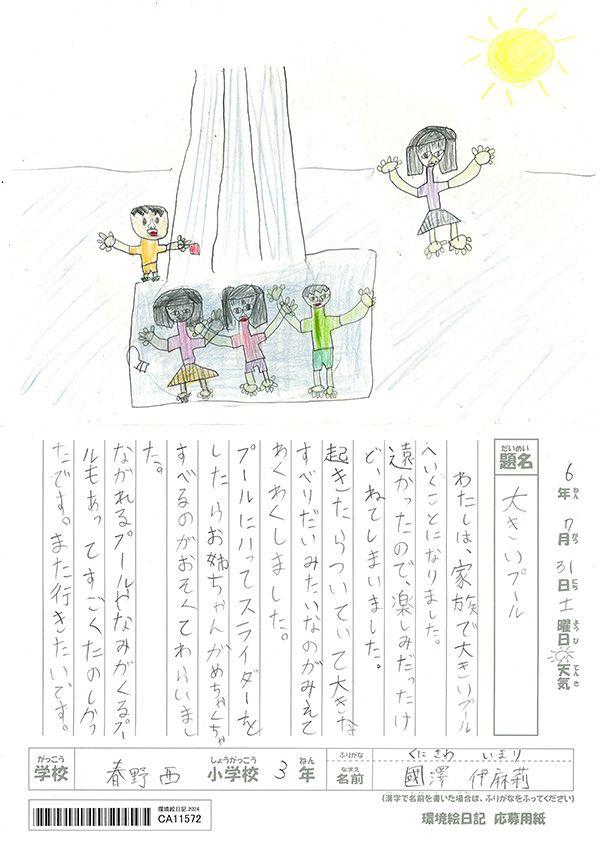 6年ねん 7月がつ 31日にち 土曜日ようび 天気てんき
だいめい
題名
大きいプール
わたしは、家族で大きいプール
へいくことになりました。
遠かったので、楽しみだったけ
ど、ねてしまいました。
起きたらついていて大きな
すべりだいみたいなのがみえて
わくわくしました。
プールに入ってスライダーを
したらお姉ちゃんがめちゃくちゃ
すべるのがおそくてわらいまし
た。
ながれるプールやなみがくるプー
ルもあってすごくたのしかっ
たです。また行きたいです。
がっこう
学校
春野西
しょうがっこう
小学校
3
ねん
年
ふりがな
くにさわ いまり
なまえ
名前
國澤 伊麻莉
(漢字で名前を書いた場合は、ふりがなをふってください)
環境絵日記 2024
CA11572
環境絵日記 応募用紙